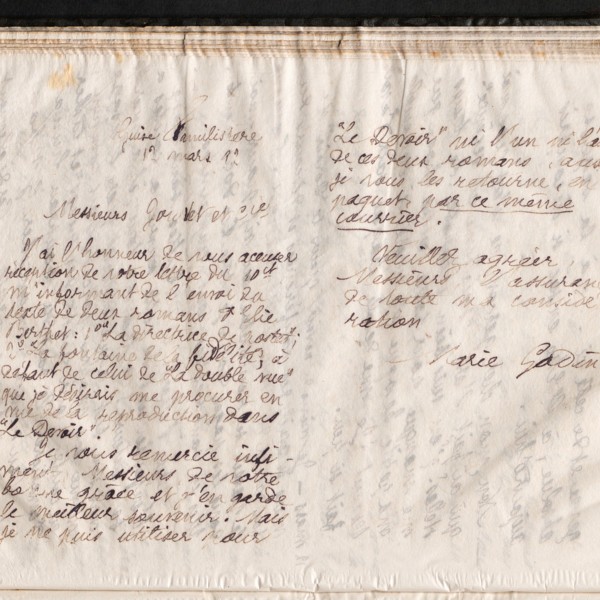 Guise Familistère
12 mars 92
Messieurs Gautet et Cie
J'ai l'honneur de vous accuser
réception de votre lettre du 10 ct
m'informant de l'envoi du
texte de deux romans d'Elie
Berthet : 1° "La directrice de postes";
2° "La fontaine de la fidélité", à
défaut de celui de "La double vue"
que je désirais me procurer en
vue de la reproduction dans
"Le Devoir".
Je vous remercie infi-
ment Messieurs de votre
bonne grâce et j'en garde
le meilleur souvenir. Mais
je ne puis utiliser pour
"Le Devoir" ni l'un ni l'au
de ces deux romans, aussi
je vous les retourne, en
paquet, par ce même
courrier.
Veuillez agréer,
Messieurs, l'assuran
de toute ma considé
ration
Marie Godin